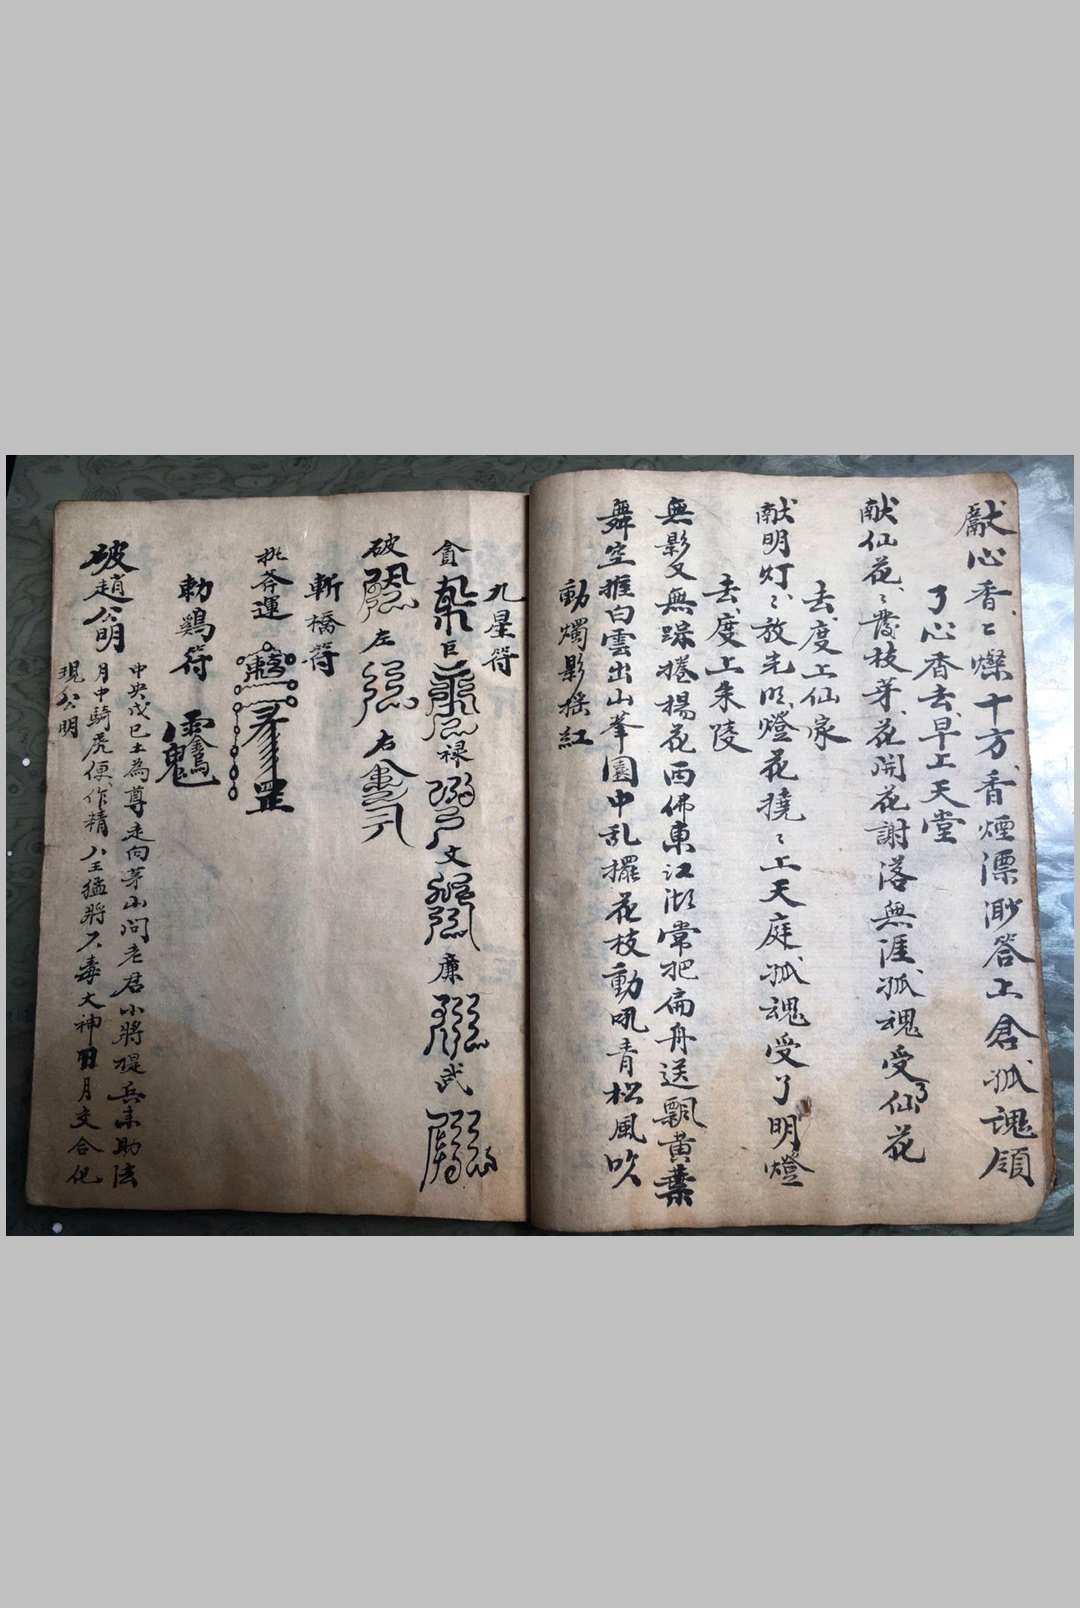 献心香〻燦十方香煙漂渺答上倉孤魂領
了心香去早上天堂
献仙花〻發枝芽花開花謝落無涯孤魂受了仙花
去度上仙家
献明灯〻放光明燈花撓〻上天庭孤魂受了明燈
去度上朱陵
無影又無踪捲楊花西佛東江湖常把扁舟送飄黃葉
舞空推白雲出山峯園中乱擺花枝動吼青松風吹
動燭影搖紅
九星符
貪 巨 禄 文 廉 武
破 左 右
斬橋符
勅鷄符
破趙公明
中央戊己土為尊走向茅山問老君小將提兵來助法
月中騎虎便作精八王猛將 毒大神日月交合化
現公明